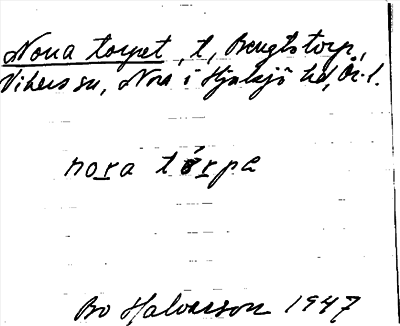 Nora torpet, t, Bengtstorp,
Vikers sn, Nora i Hjulsjö hd, Ör. l.
nora tórpa
Bo Halvarson 1947